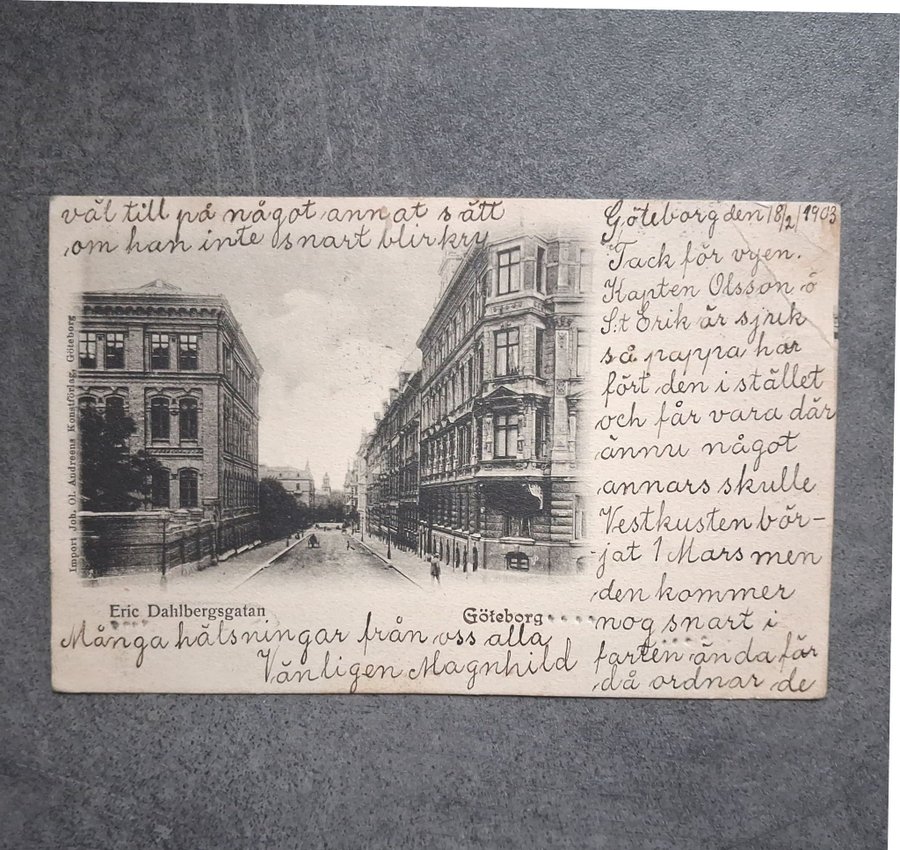 Göteborg den 18/2 1903
Tack för vyen.
Kapten Olsson å
S:t Erik är sjuk
så pappa har
fört den i stället
och får vara där
ännu något
annars skulle
Vestkusten bör-
jat 1 Mars men
den kommer
nog snart i
farten ända för
då ordnar de
väl till på något annat sätt
om han inte snart blir kry
Många hälsningar från oss alla
Vänligen Magnhild
Eric Dahlbergsgatan
Göteborg
Import Joh. Ol. Andreens Konstförlag, Göteborg